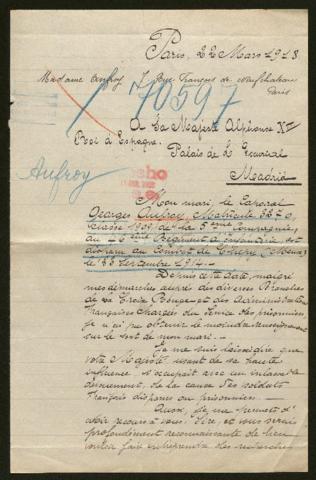 Paris, 22 Mars 1918
Madame Aufroy 7 Rue François de Neufchateau
Paris
70597
A Sa Majesté Alphonse XIII
Roi d'Espagne.
Palais de
Madrid
Aufroy
Mon mari, le Caporal
Georges Aufroy, Matricule
classe 1909 de la 5ème Compagnie,
du Régiment d'infanterie, est
disparu au Combat de (Meuse)
le Septembre 1914.
Depuis cette date, malgré
mes démarches auprès des diverses
de la Croix Rouge et des Administrations
Françaises Chargées du Service des prisonniers,
je n'ai pu obtenir le moindre renseignement
sur le sort de mon mari.
Je me suis laissé dire que
votre Majesté, usant de sa haute
influence s'occupait avec un inlassable
dévouement, de la cause des soldats
français disparus ou prisonniers.
Aussi, je me permets d'
avoir recours à vous, Sire, et vous serais
profondément reconnaissante de bien
vouloir faire entreprendre des recherches